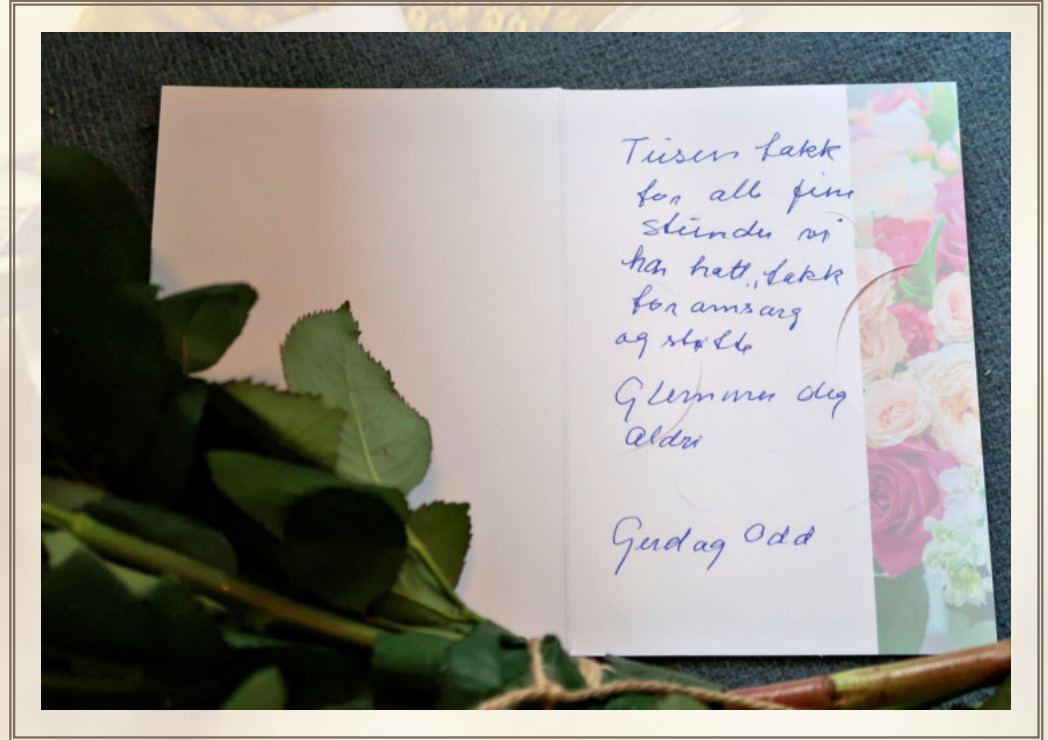 Tusen takk
for all fine
stunder vi
har hatt, takk
for omsorg
og støtte
Glemmer deg
aldri
Gerd og Odd